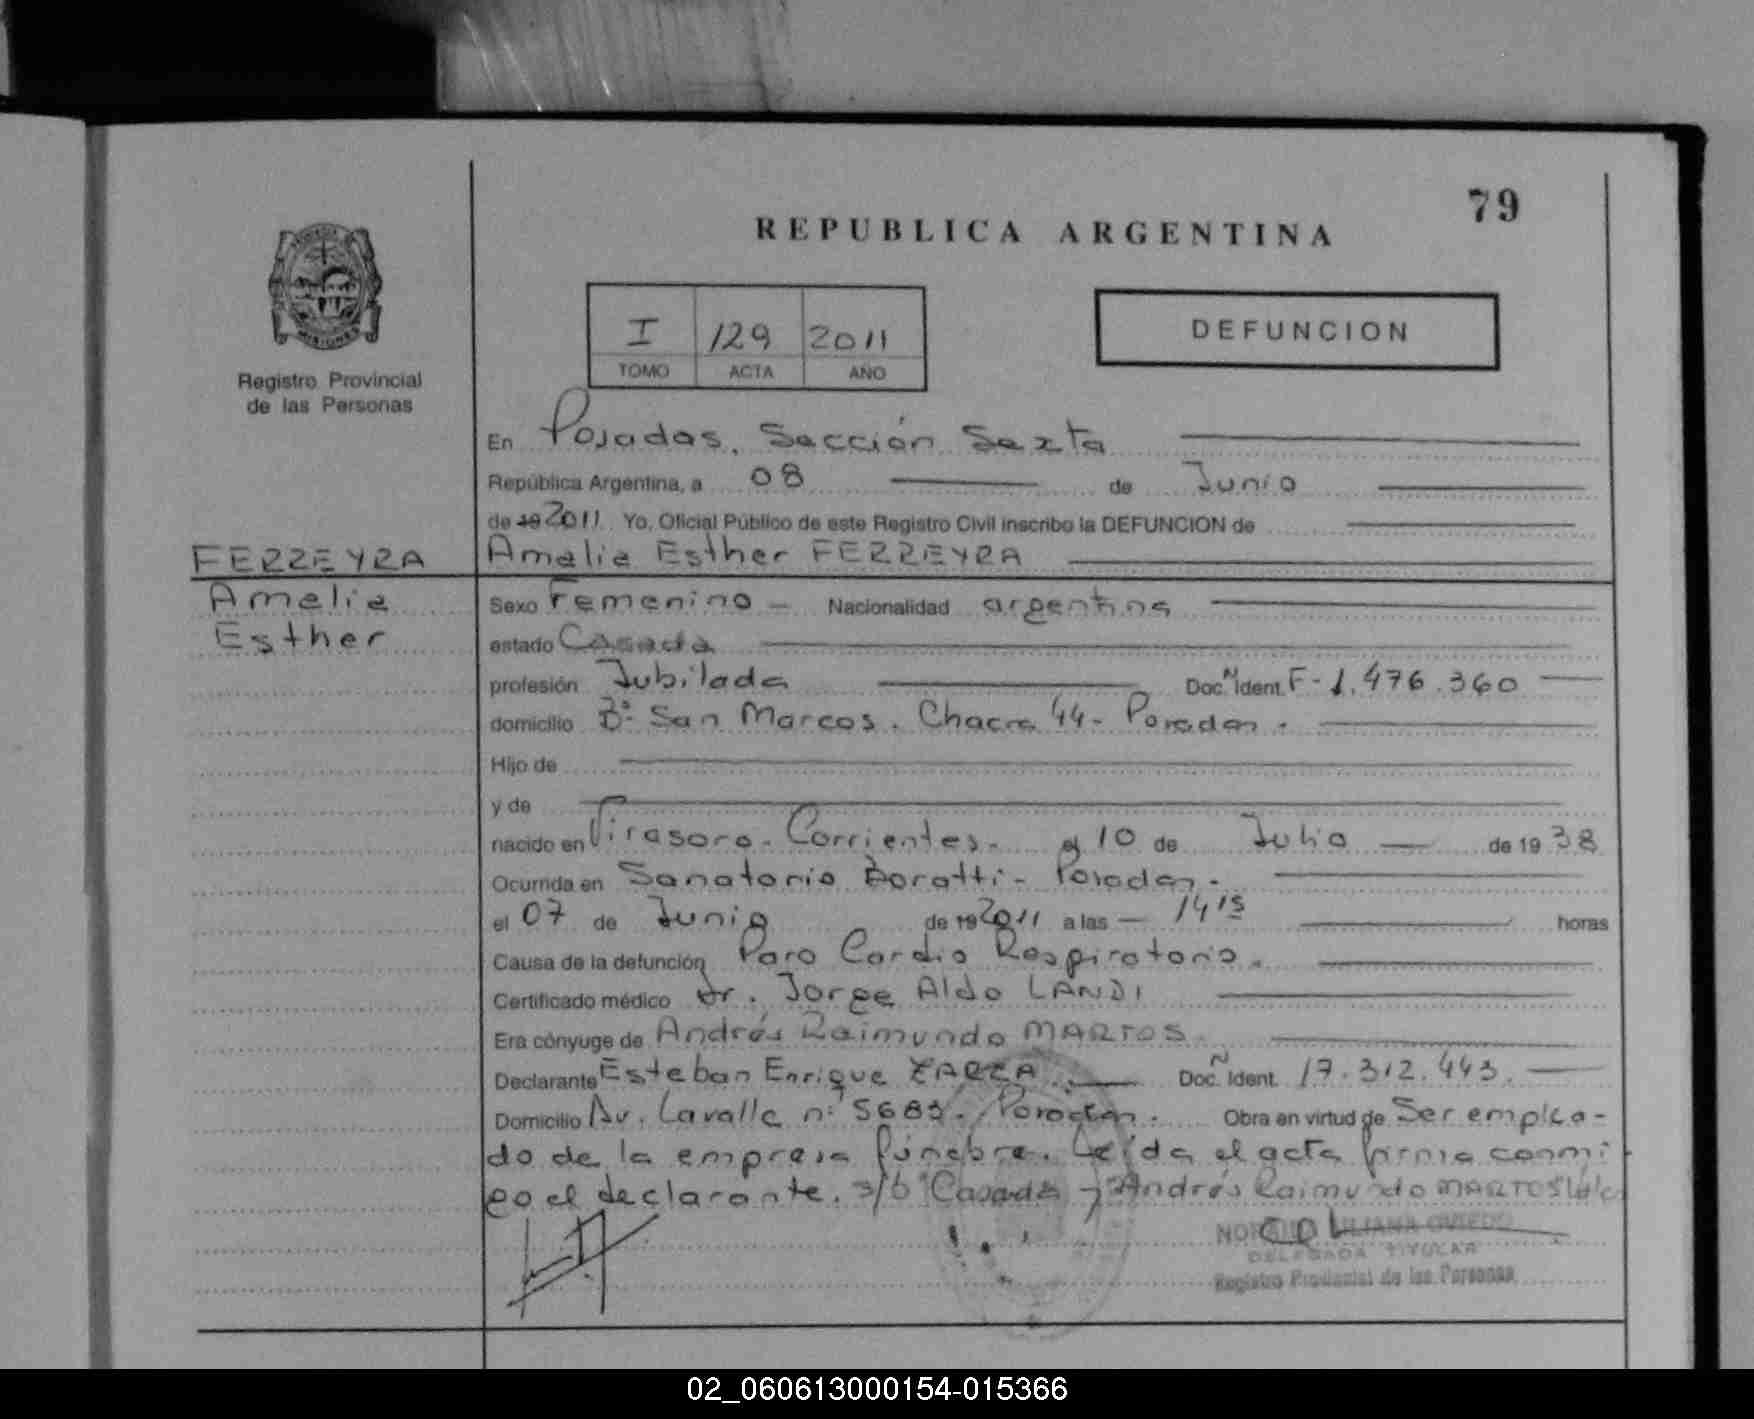 79
REPUBLICA ARGENTINA
MISIONES
I 129 2011
TOMO ACTA AÑO
DEFUNCION
Registro Provincial
de las Personas
En Posadas, Sección Sexta
República Argentina, a 08 de Junio
de 19 2011 Yo, Oficial Público de este Registro Civil inscribo la DEFUNCION de
FERREYRA
Amelia Esther FERREYRA
Amelia
Esther
Sexo Femenino - Nacionalidad argentina
estado Casada
profesión Jubilada Doc. N Ident. F-1.476.360
domicilio Bº San Marcos. Chacra 44- Posadas.
Hijo de
y de
nacido en Virasoro. Corrientes. el 10 de Julio de 19 38
Ocurrida en Sanatorio Boratti- Posadas.
el 07 de Junio de 19 2011 a las 14 15 horas
Causa de la defunción Paro Cardio Respiratorio.
Certificado médico Dr. Jorge Aldo LANDI
Era cónyuge de Andrés Raimundo MARTOS.
Declarante Esteban Enrique Doc. N Ident. 17.312.443.
Domicilio Av. Lavalle nº 5683. Posadas. Obra en virtud de Ser emplea-
do de la empresa fúnebre. Leída el acta firma conmi
go el declarante. s/b "Casada y Andrés Raimundo MARTOS"
LILIANA OVIEDO
DELEGADA TITULAR
Registro Provincial de las Personas
02_060613000154-015366